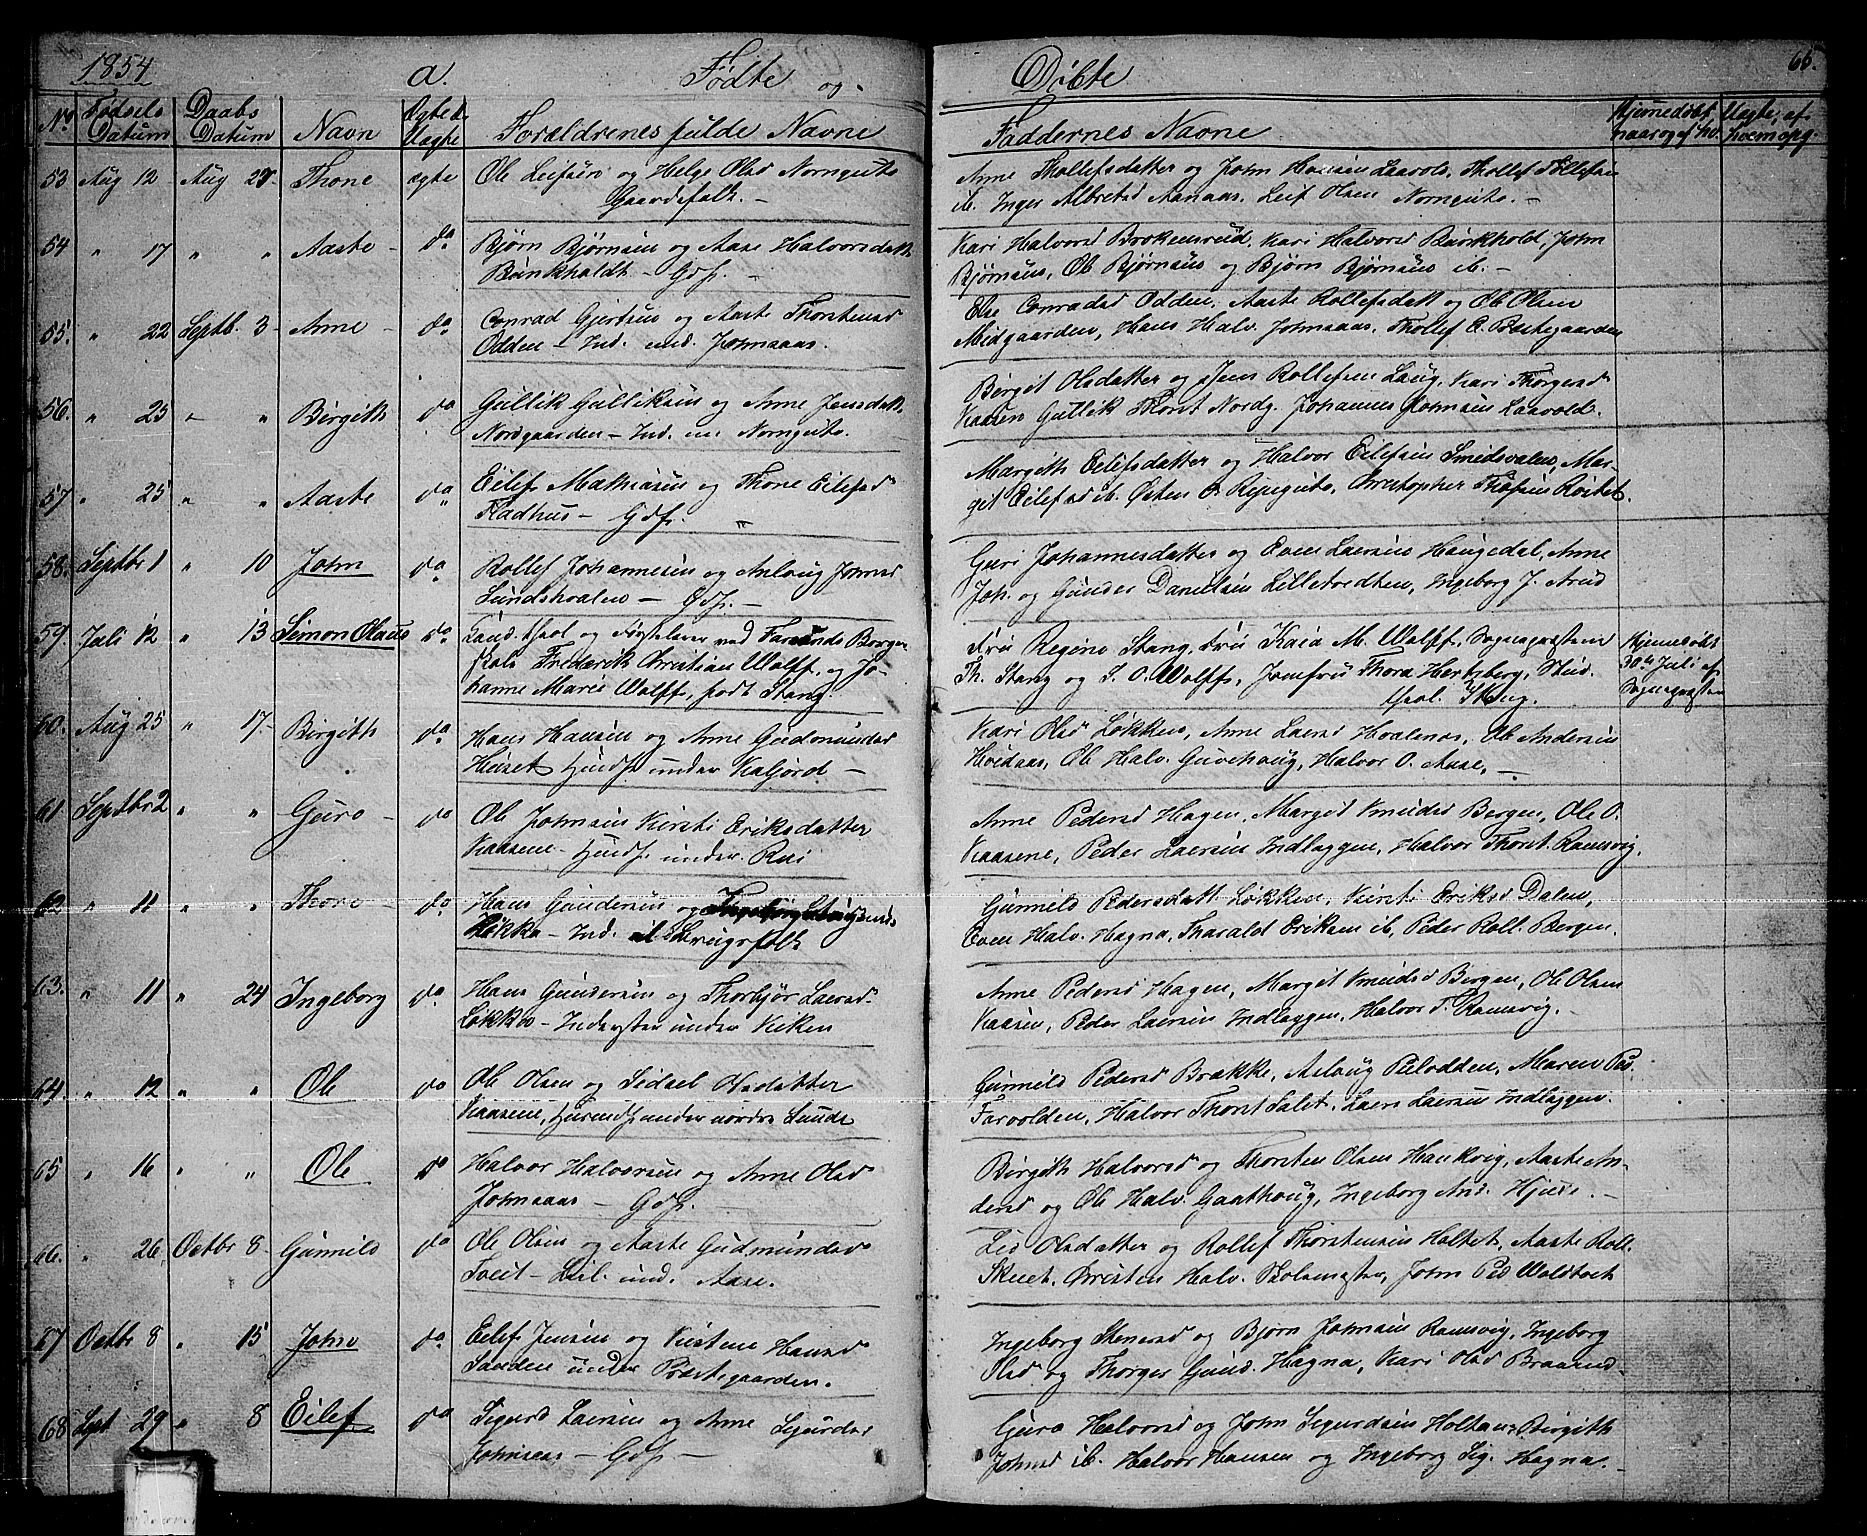 1854 a. Fødte og Døbte 65.
No. Fødsels Datum Daabs Datum Navn Ægte el. Uægte Forældrenes fulde Navne Faddernes Navne Hjemmedøbt, naar og af hv. Uægte, af hvem opg.
53 Aug 12 Aug 27 Thone ægte Ole Leifsen og Helge Olsd Nornguto
Gaardsfolk. —
Anne Thollefsdatter og John Hansen Laavold, Thollef Tollefsen
ib. Inger Albretsd Aanaas. Leif Olsen Nornguto. —
54 " 17 " " Aaste do Bjørn Bjørnsen og Aase Halvorsdatt
Bunkholdt — Gdf. —
Kari Halvorsd Brokensreid, Kari Halvorsd Bunkhold, John
Bjørnsen, Ole Bjørnsen og Bjørn Bjørnsen ib. —
55. " 22 Septb. 3 Anne do Conrad Gjertsen og Aaste Thorstensd
Odden — Ind. und. Johnsaas.
Else Conradsd Odden, Aaste Rollefsdatt og Ole Olsen
Midgaarden, Hans Halv. Johnsaas, Thollef O. Præstegaarden
56. " 25 " " Birgith do Gullik Gulliksen og Anne Jensdatt.
Nordgaarden — Ind. un Nornguto.
Birgit Olsdatter og Jens Rollefsen Haug, Kari Thorgersd
Kaasen Gullik Thorst Nordg. Johannes Johnsen Laavold.
57 " 25 " " Aaste do Eilef Mathisen og Thone Eilefsd
Fladhus — Gdf.
Margith Eilefsdatter og Halvor Eilefsen Smedsvalen, Mar-
git Eilefsd ib. Østen O. Ringuto, Christopher Rostet.
58. Septbr 1 " 10 John do Rollef Johannesen og Aslaug Johnsd
Lundshvalen — Gdf. —
Guri Johannesdatter og Even Laersen Haugedal, Anne
Joh. og Gunder Danielsen Lilletvedten, Ingeborg J. Arud
59. Juli 12 " 13 Simon Olaus do Cand. theol og Førstelærer ved Farsunds Borger
skole Frederik Christian Wolff, og Jo-
hanne Marie Wolff, født Stang.
Fru Regine Stang, fru Kaia M. Wolff, Sognepræstene
Th. Stang og S. O. Wolff, Jomfru Thora Hertzberg, Stud.
theol. Stang.
Hjemmedøbt
30te Juli af
Sognepræsten
60. Aug 25 " 17. Birgith do Hans Hansen og Anne Gudmundsd
Huset Husmf under Kaljord —
Kari Olsd Løkken, Anne Laersd Hvalenes, Ole Andersen
Hvidaas, Ole Halv. Gurihaug, Halvor O. Aase, —
61 Septbr 2 " " Guro do Ole Johnsen Kirsti Eriksdatter
Kaasene — Husmf. under Rui
Anne Pedersd Hagen, Margit Knudsd Bergen, Ole O.
Kaasene, Peder Laersen Indlaggen, Halvor Thorst. Ramsvig.
62 " 11 " " Thone do Hans Gundersen og
Løkka — Ind.
Gunnild Pedersdatt Løkken, Kirsti Eriksd Dalen,
Even Halv. Hagna, Tharald Eriksen ib, Peder Roll. Bergen.
63. " 11 " 24 Ingeborg do Hans Gundersen og Thorbjør Laersd.
Løkka — Inderster under Kiken
Anne Pedersd Hagen, Margit Knudsd Bergen, Ole Olsen
Kaasen, Peder Laersen Indlaggen, Halvor T. Ramsvig.
64. " 12 " " Ole do Ole Olsen og Sidsel Olsdatter
Kaasene, Husmdf under nordre Lunde
Gunnild Pedersd Brække, Aslaug Pelodden, Maren Ped.
Farvolden, Halvor Thorst Salet, Laers Laersen Indlaggen.
65 " 16 " " Ole do Halvor Halvorsen og Anne Olsd
Johnsaas — Gdf. —
Birgith Halvorsd og Thorsten Olsen Haukvig, Aaste An-
dersd og Ole Halv. Gaathaug, Ingeborg And. Hjuxe. —
66. " 26 Octbr 8 Gunnild do Ole Olsen og Aaste Gudmundsd
Tveit — Leil. und. Aase.
Liv Olsdatter og Rollef Thorstensen Holtet, Aaste Roll.
Skuet, Christen Halv. Skolemester, John Ped Woldstock
67 Octbr 8 " 15 John do Eilef Jensen og Kirstine Hansd
Sanden under Præstegaarden.
Ingeborg Stenersd og Bjørn Johnsen Ramsvig, Ingeborg
Olsd og Thorger Gund. Hagna, Kari Olsd Braasund
68 Sept 29 " 8 Eilef do Sigurd Laersen og Anne Sigurdsd
Johnsaas — Gdf —
Guro Halvorsd og John Sigurdsen Holtan, Birgith
Johnsd ib. Halvor Hansen og Ingeborg Sig. Hagna. —